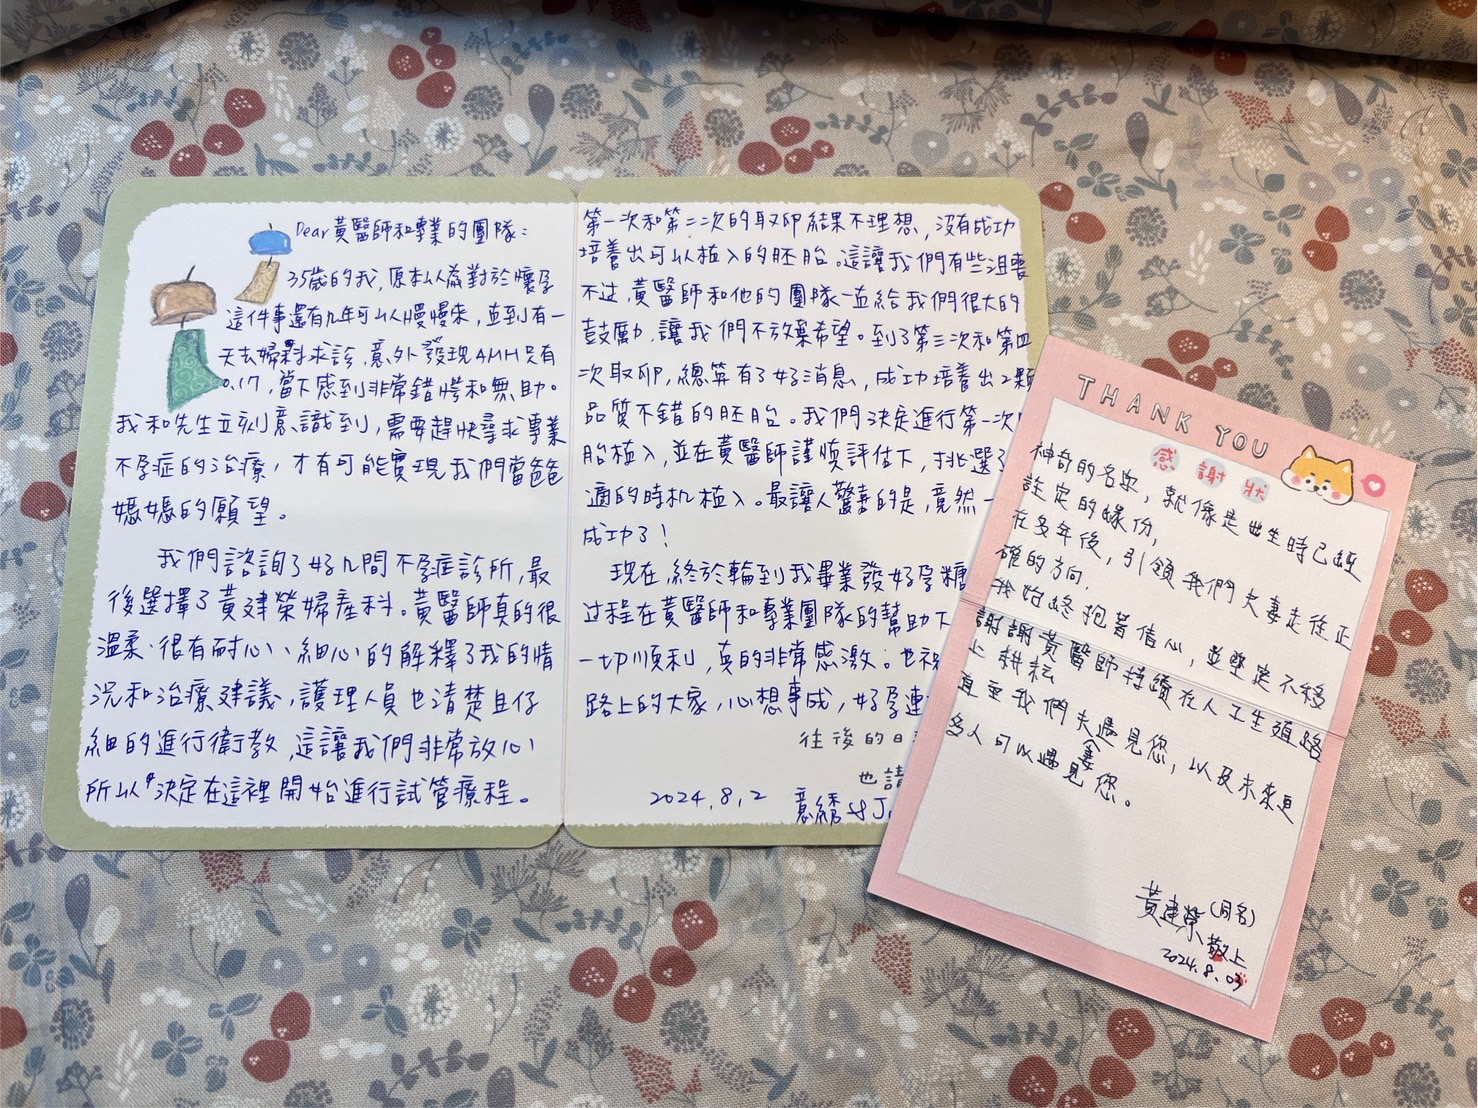 Dear 黃醫師和專業的團隊：
35歲的我，原本以為對於懷孕
這件事還有幾年可以慢慢來，直到有一
天去婦科求診，意外發現AMH只有
0.17，當下感到非常錯愕和無助。
我和先生立刻意識到，需要趕快尋求專業
不孕症的治療，才有可能實現我們當爸爸
媽媽的願望。
我們諮詢了好几間不孕症診所，最
後選擇了黃建榮婦產科。黃醫師真的很
溫柔、很有耐心、細心的解釋了我的情
況和治療建議，護理人員也清楚且仔
細的進行衛教，這讓我們非常放心
所以決定在這裡開始進行試管療程。
第一次和第二次的取卵結果不理想，沒有成功
培養出可以植入的胚胎。這讓我們有些沮喪
不过，黃醫師和他的團隊一直給我們很大的
鼓勵，讓我們不放棄希望。到了第三次和第四
次取卵，總算有了好消息，成功培養出2顆
品質不錯的胚胎。我們決定進行第一次
胎植入，並在黃醫師謹慎評估下，挑選了
適的時机植入。最讓人驚喜的是，竟然一
成功了！
現在，終於輪到我畢業發好孕糖
过程在黃醫師和專業團隊的幫助下
一切順利，真的非常感激。也祝
路上的大家，心想事成，好孕連
往後的日
也請
2024.8.2
意綉 & J
THANK YOU
感謝狀
神奇的名字，就像是出生時已經
註定的緣份，
在多年後，引領我們夫妻走往正
確的方向，
我始終抱著信心，並堅定不移
謝謝黃醫師持續在人工生殖路
上耕耘
直至我們夫妻遇見您，以及未來更
多人可以遇見您。
黃建榮（同名）
敬上
2024.8.03